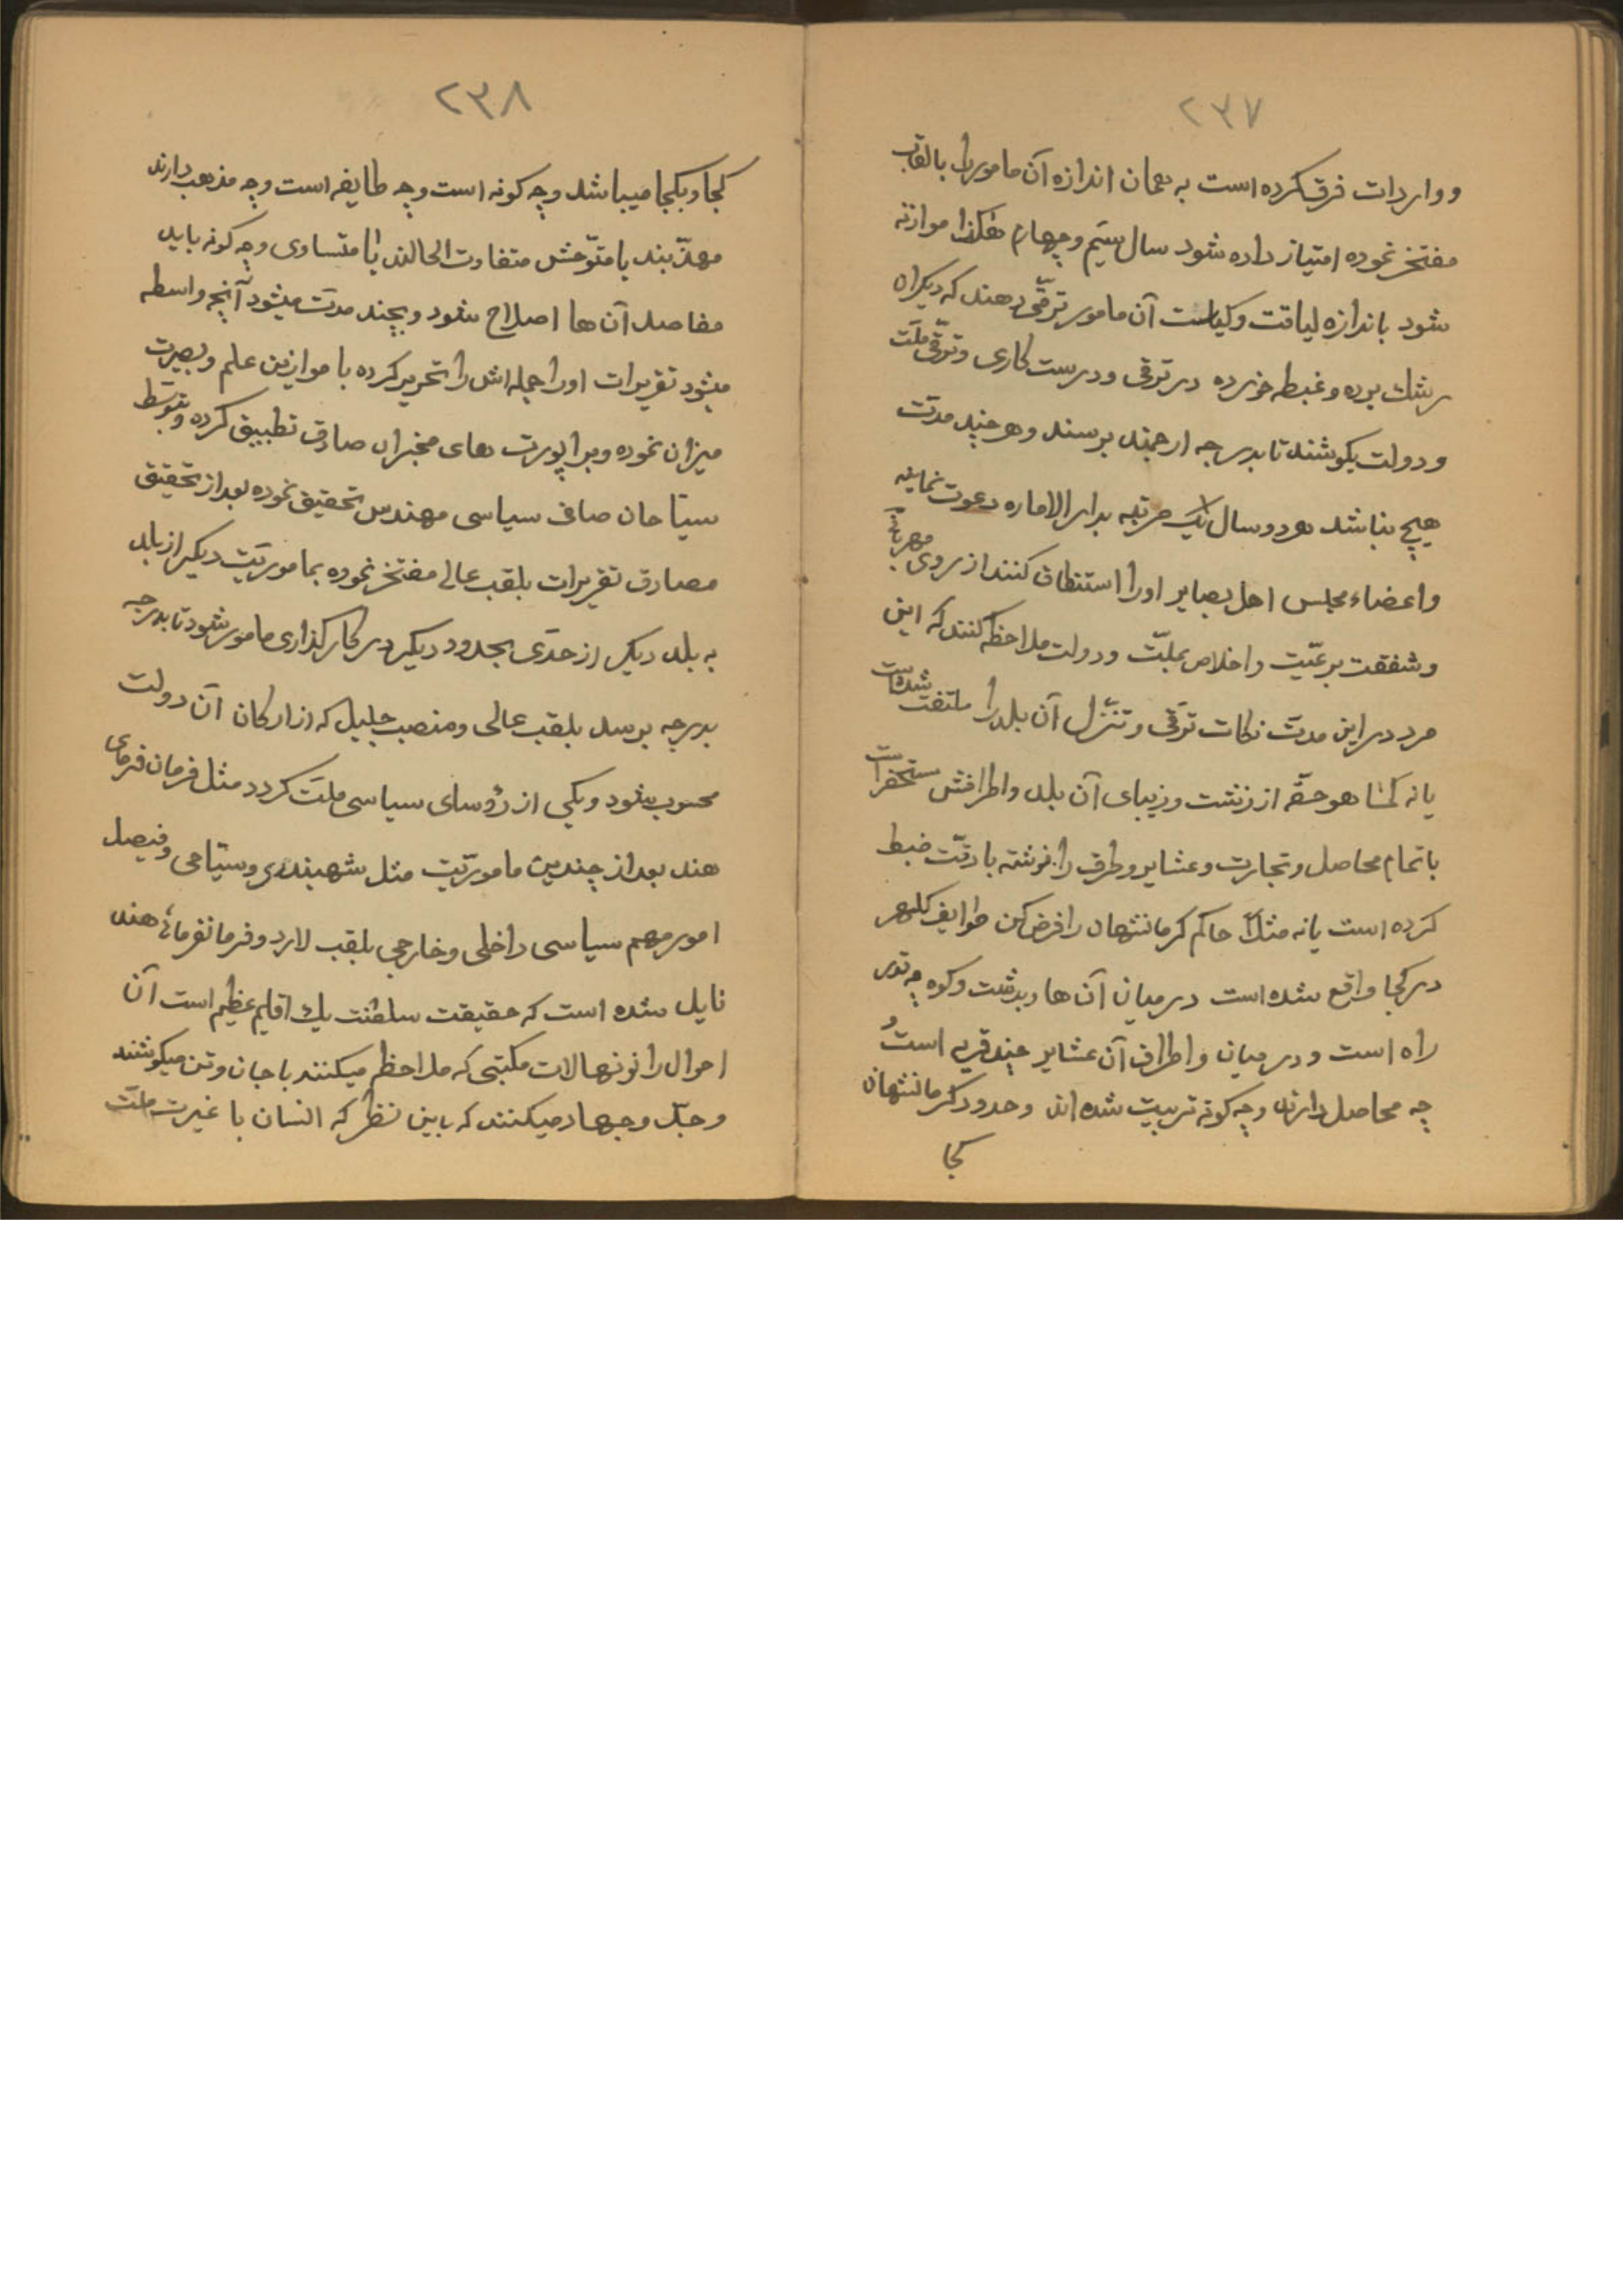 ۲۳۷
و واردات فرق کرده است به همان اندازه آن مامور را بالقاب
مفتخر نموده امتیاز داده شود سال سیّم و چهارم هکذا موازنه
شود باندازه لیاقت و کیاست آن مامور ترقّی دهند که دیگران
رشك برده و غبطه خورده در ترقی و درست کاری و ترقّی ملّت
و دولت بکوشند تا بدرجه ارجمند برسند و هر چند مدّت
هیچ نباشد هر دو سال یك مرتبه بدار الاماره دعوت نمایند
و اعضاء مجلس اهل بصایر او را استنطاق کنند از روی مهربانی
و شفقت برعیّت و اخلاص بملّت و دولت ملاحظه کنند که این
مرد در این مدّت نکات ترقّی و تنزّل آن بلد را ملتفت شده است
یا نه کما هو حقّه از زشت و زیبای آن بلد و اطرافش مستحضر است
با تمام محاصل و تجارت و عشایر و طرق را نوشته با دقّت ضبط
کرده است یا نه مثلاً حاکم کرمانشهان را فرض کن طوایف کلهر
در کجا واقع شده است در میان آن ها و بدشت و کوه چه قدر
راه است و در میان و اطراف آن عشایر چند قریه است و
چه محاصل دارند و چه کونه تربیت شده اند و حدود کرمانشهان
کجا
۲۳۸
کجا و بکجا میباشد و چه کونه است و چه طایفه است و چه مذهب دارند
مهذّبند یا متوّحش متفاوت الحالند یا متساوی و چه کونه باید
مفاصد آن ها اصلاح شود و بچند مدّت میشود آنچه واسطه
میشود تقریرات او را جمله اش را تحریر کرده با موازین علم و بصیرت
میزان نموده و براپورت های مخبران صادق تطبیق کرده و بتوسّط
سیّاحان صاف سیاسی مهندس تحقیق نموده بعد از تحقیق
مصادق تقریرات بلقب عالی مفتخر نموده بماموریّت دیکر از بلد
به بلد دیکر از حدّی بحدود دیکر در کار کذاری مامور شود تا بدرجه
بدرجه برسد بلقب عالی و منصب جلیل که از ارکان آن دولت
محسوب بشود و یکی از رؤسای سیاسی ملّت کردد مثل فرمان فرمای
هند بعد از چندین ماموریّت مثل شهبندری و سیّاحی و فیصل
امور مهم سیاسی داخلی و خارجی بلقب لارد و فرمانفرمائ هند
نایل شده است که حقیقت سلطنت یك اقلیم عظیم است آن
احوال را نونهالات مکتبی که ملاحظه میکنند با جان و تن میکوشند
و جدّ و جهاد میکنند که باین نظر که انسان با غیرت ملّت